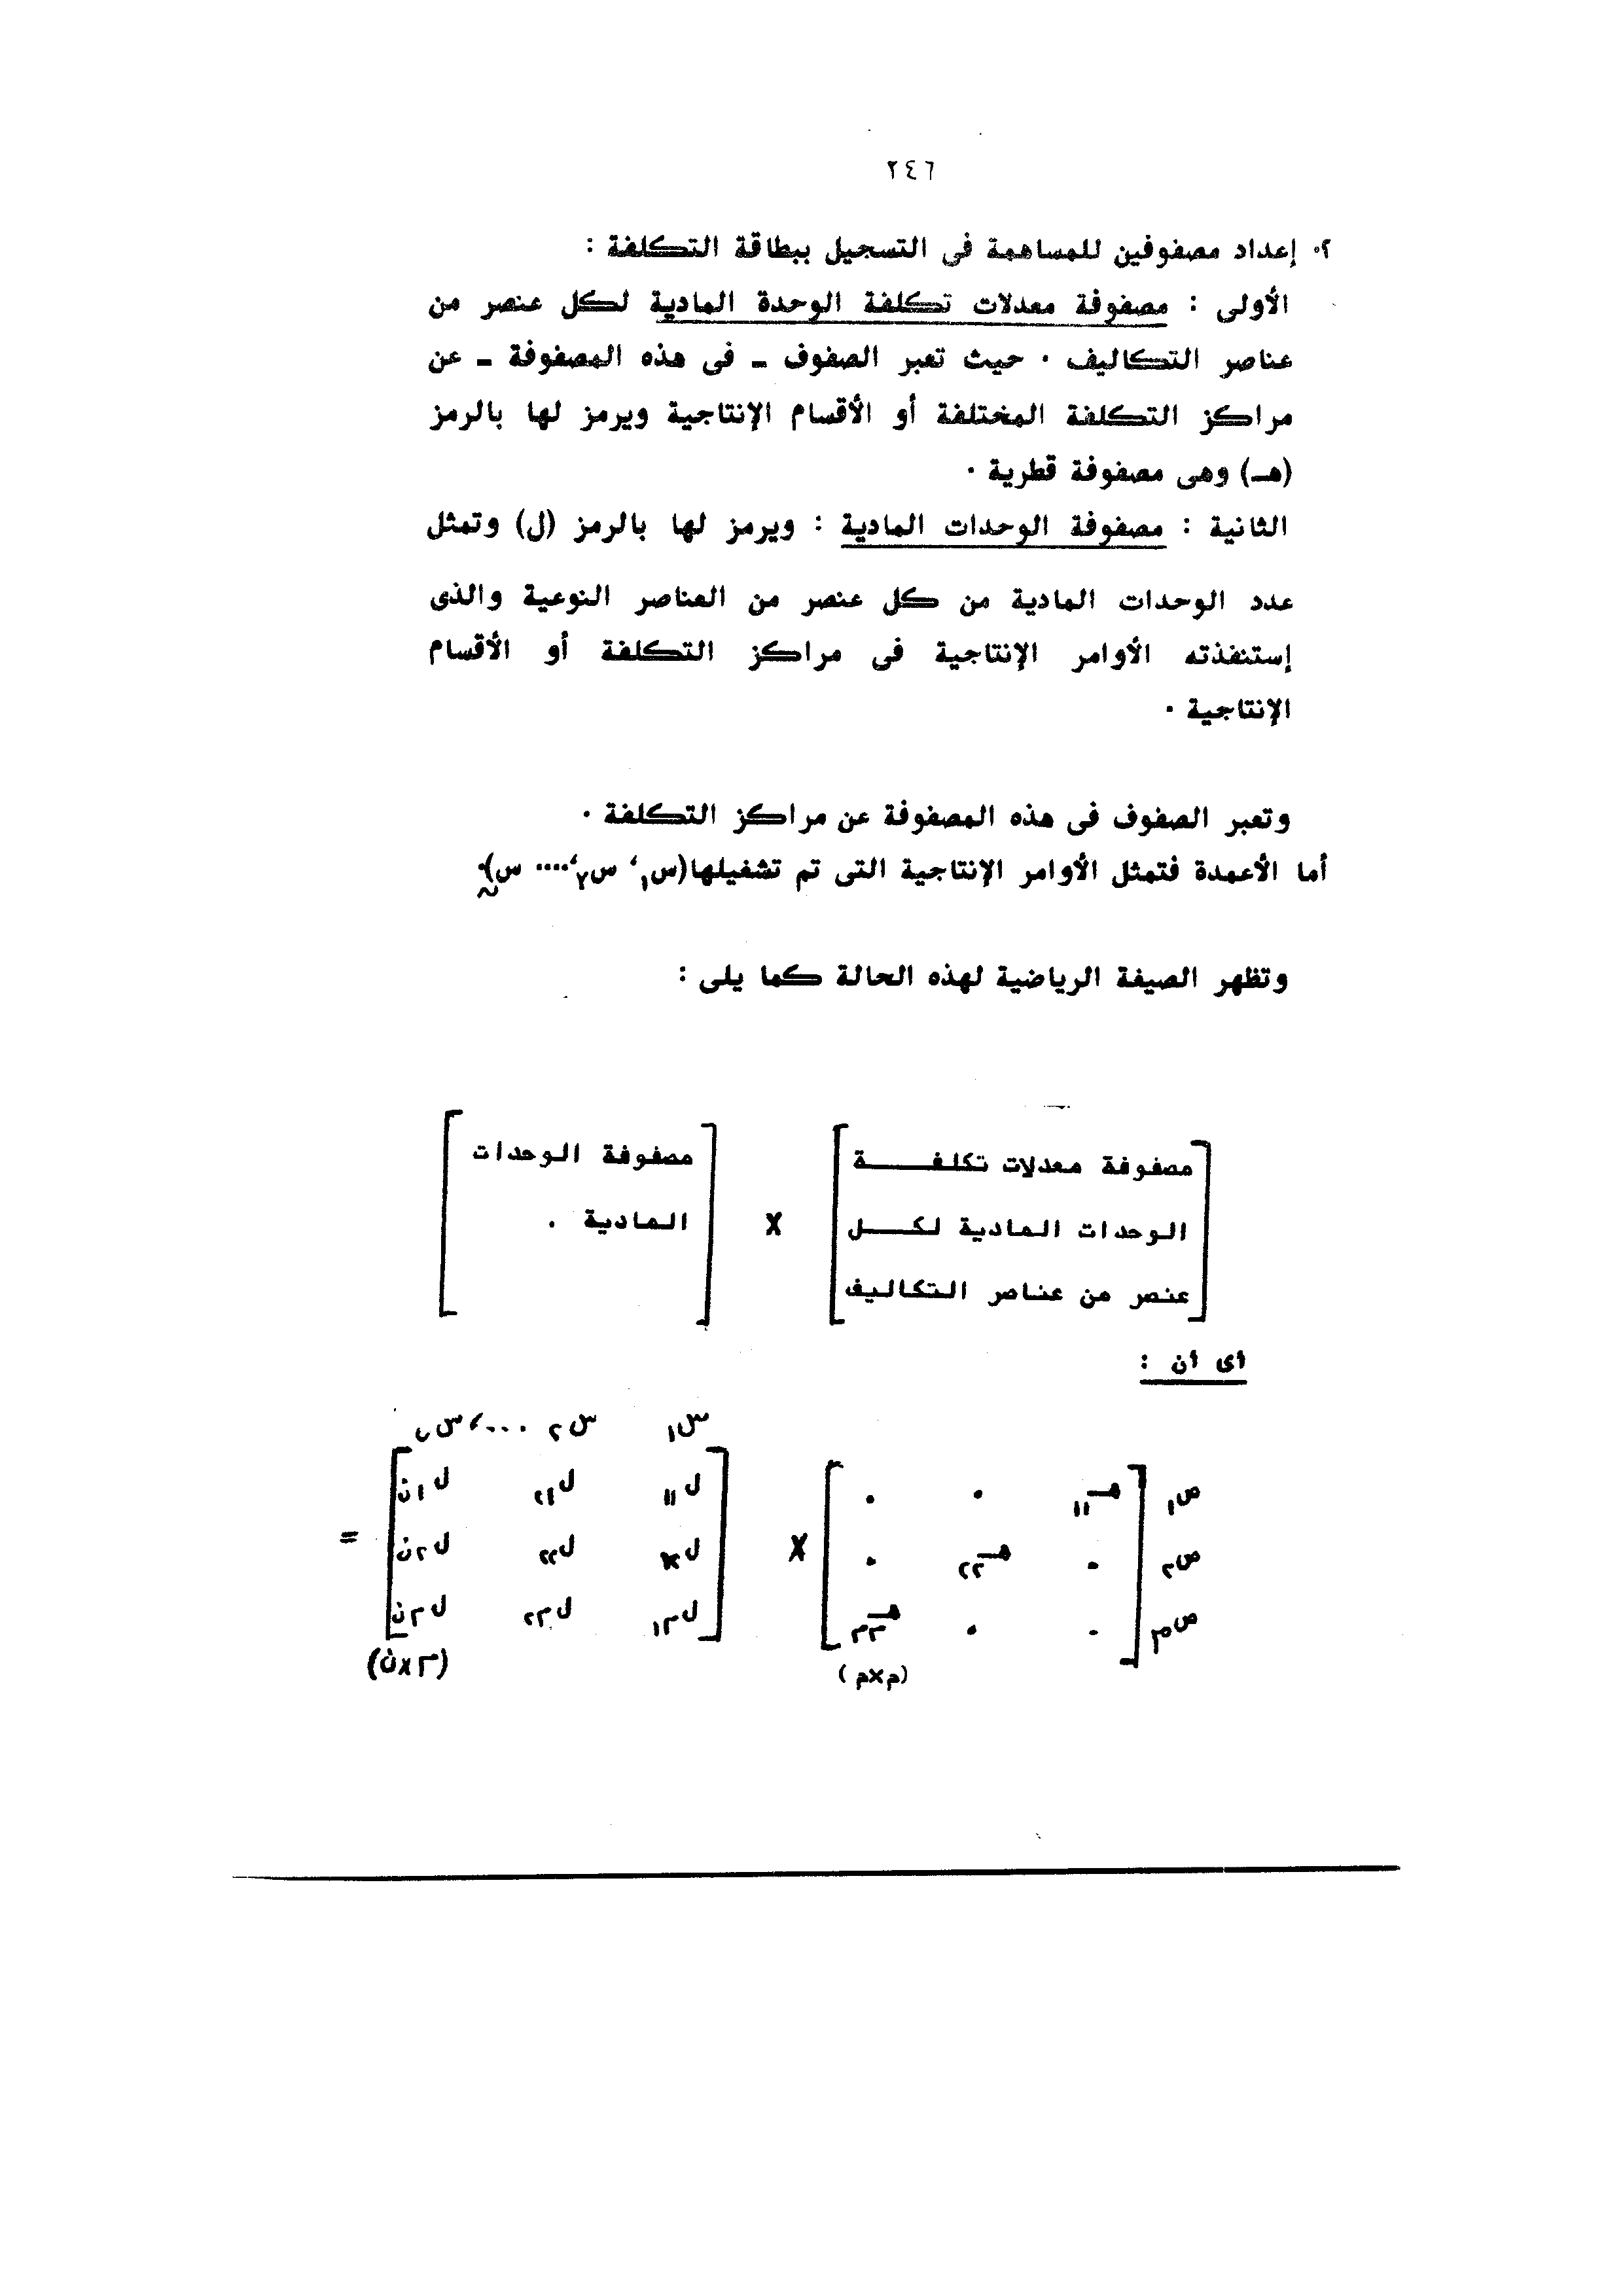 ٢٤٦
٢٠ إعداد مصفوفين للمساهمة فى التسجيل ببطاقة التكلفة :
الأولى : مصفوفة معدلات تكلفة الوحدة المادية لكل عنصر من
عناصر التكاليف ٠ حيث تعبر الصفوف ـ فى هذه المصفوفة ـ عن
مراكز التكلفة المختلفة أو الأقسام الإنتاجية ويرمز لها بالرمز
(هـ) وهى مصفوفة قطرية ٠
الثانية : مصفوفة الوحدات المادية : ويرمز لها بالرمز (ل) وتمثل
عدد الوحدات المادية من كل عنصر من العناصر النوعية والذى
إستنفذته الأوامر الإنتاجية فى مراكز التكلفة أو الأقسام
الإنتاجية ٠
وتعبر الصفوف فى هذه المصفوفة عن مراكز التكلفة ٠
أما الأعمدة فتمثل الأوامر الإنتاجية التى تم تشغيلها(س١، س٢،.... سن)٠
وتظهر الصيغة الرياضية لهذه الحالة كما يلى :
مصفوفة معدلات تكلفـــــة X مصفوفة الوحدات
الوحدات المادية لكـــل المادية .
عنصر من عناصر التكاليف
أى أن :
س١ س٢ ....، سن
ص١ هـ١١ ٠ ٠ ل١١ ل٢١ ل١ن
ص٢ ٠ هـ٢٢ ٠ X ل٢٢ ل٢ن =
ص٣ ٠ ٠ هـ٣٣ ل٣١ ل٣٢ ل٣ن
(م×م) (٣×ن)